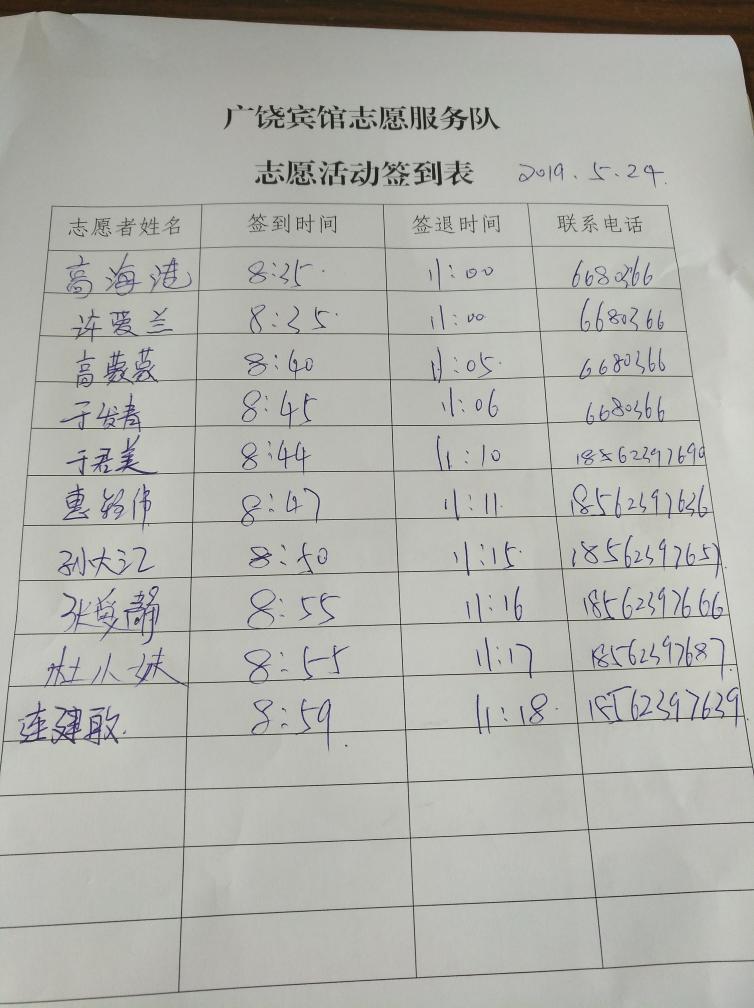 广饶宾馆志愿服务队
志愿活动签到表 2019.5.24.
志愿者姓名 签到时间 签退时间 联系电话
高海港 8:35 11:00 6680366
许爱兰 8:35 11:00 6680366
高薇薇 8:40 11:05 6680366
于发春 8:45 11:06 6680366
于君美 8:44 11:10 18562397690
惠 伟 8:47 11:11 18562397636
孙大江 8:50 11:15 18562397657
张爱静 8:55 11:16 18562397666
杜小妹 8:55 11:17 18562397687
连建敏 8:59 11:18 18562397639